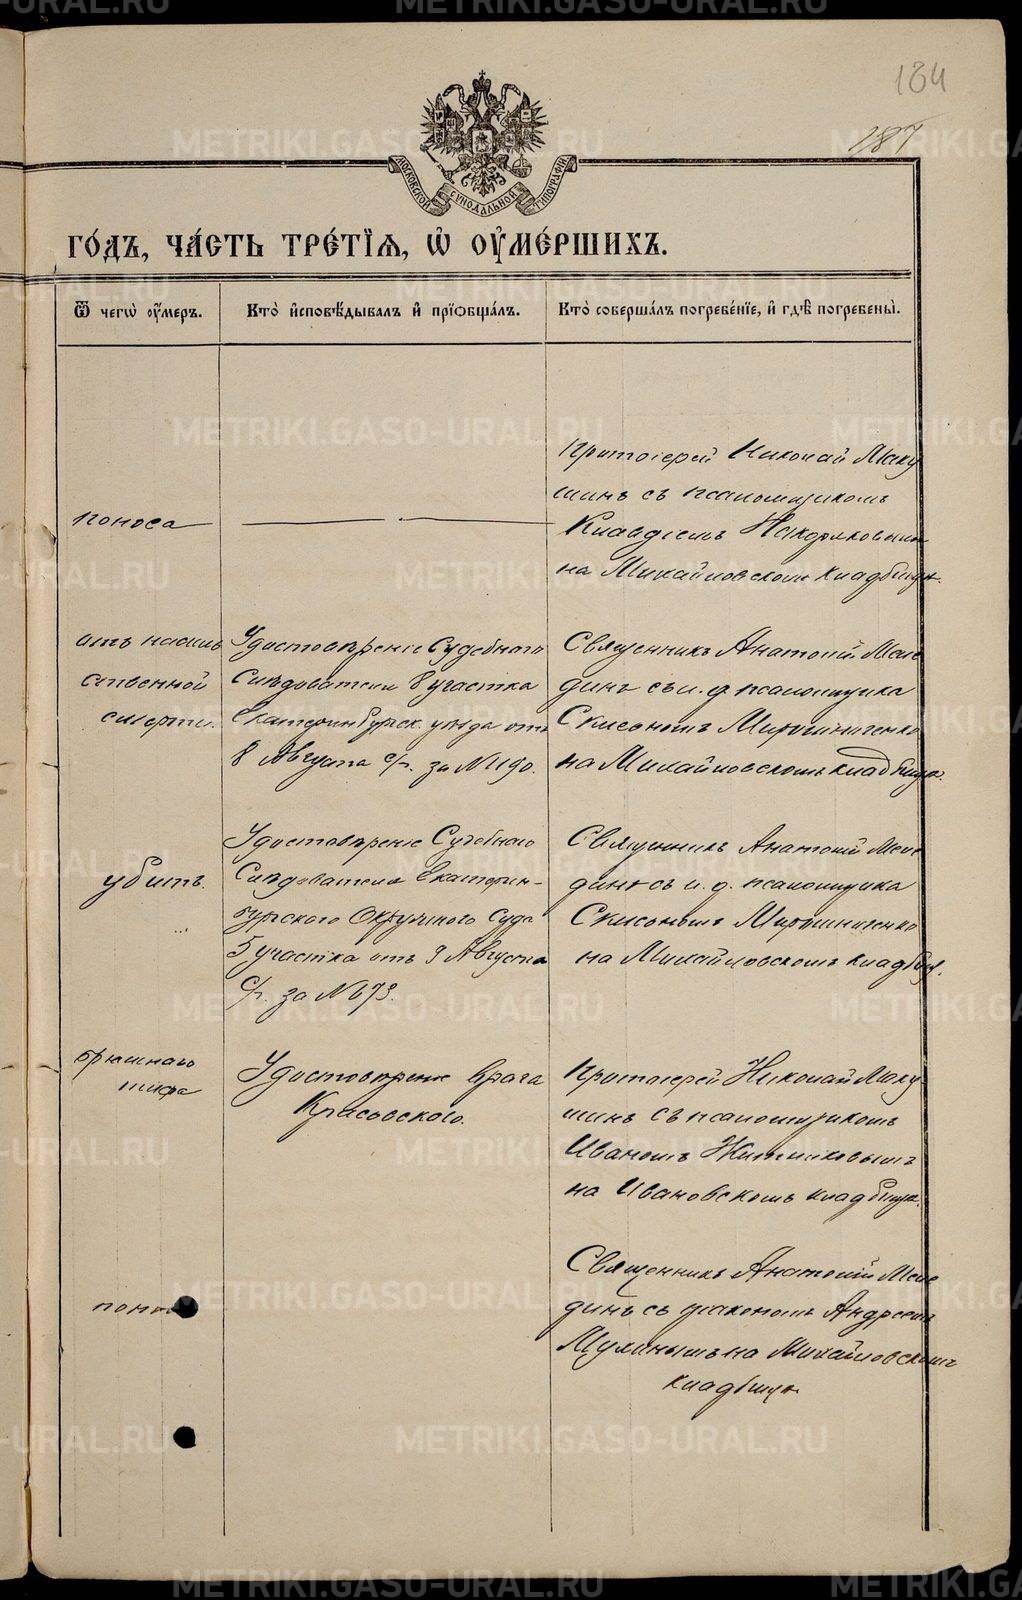 METRIKI.GASO-URAL.RU
184
187
МОСКОВСКОЙ СУНОДАЛЬНОЙ ТИПОГРАФІИ
ГО́ДЪ, ЧА́СТЬ ТРЕ́ТІѦ, Ѡ҆ ОУ҆МЕ́РШИХЪ.
Ѿ чегѡ̀ оу҆́меръ.
Кто̀ и҆сповѣ́дывалъ и҆ прїѡбща́лъ.
Кто̀ соверша́лъ погребе́нїе, и҆ гдѣ̀ погребены̀.
поноса
Протоіерей Николай Маку
шинъ съ псаломщикомъ
Клавдіемъ Накоряковымъ
на Михайловскомъ кладбищѣ.
отъ насиль
ственной
смерти.
Удостовѣреніе Судебнаго
Слѣдователя 8 участка
Екатеринбургск. уѣзда отъ
8 Августа с/г. за № 190.
Священникъ Анатолій Меле
динъ съ и. д. псаломщика
Симеономъ Мирошниченко
на Михайловскомъ кладбищѣ.
убитъ.
Удостовѣреніе Судебнаго
Слѣдователя Екатерин-
бургскаго Окружнаго Суда
5 участка отъ 9 Августа
с/г. за № 673.
Священникъ Анатолій Меле
динъ съ и. д. псаломщика
Симеономъ Мирошниченко
на Михайловскомъ кладбищ.
брюшнаго
тифа
Удостовѣреніе врача
Красовскаго.
Протоіерей Николай Маку
шинъ съ псаломщикомъ
Иваномъ Житниковымъ
на Ивановскомъ кладбищѣ.
поно
Священникъ Анатолій Меле
динъ съ діакономъ Андреемъ
на Михайловскомъ
кладбищѣ